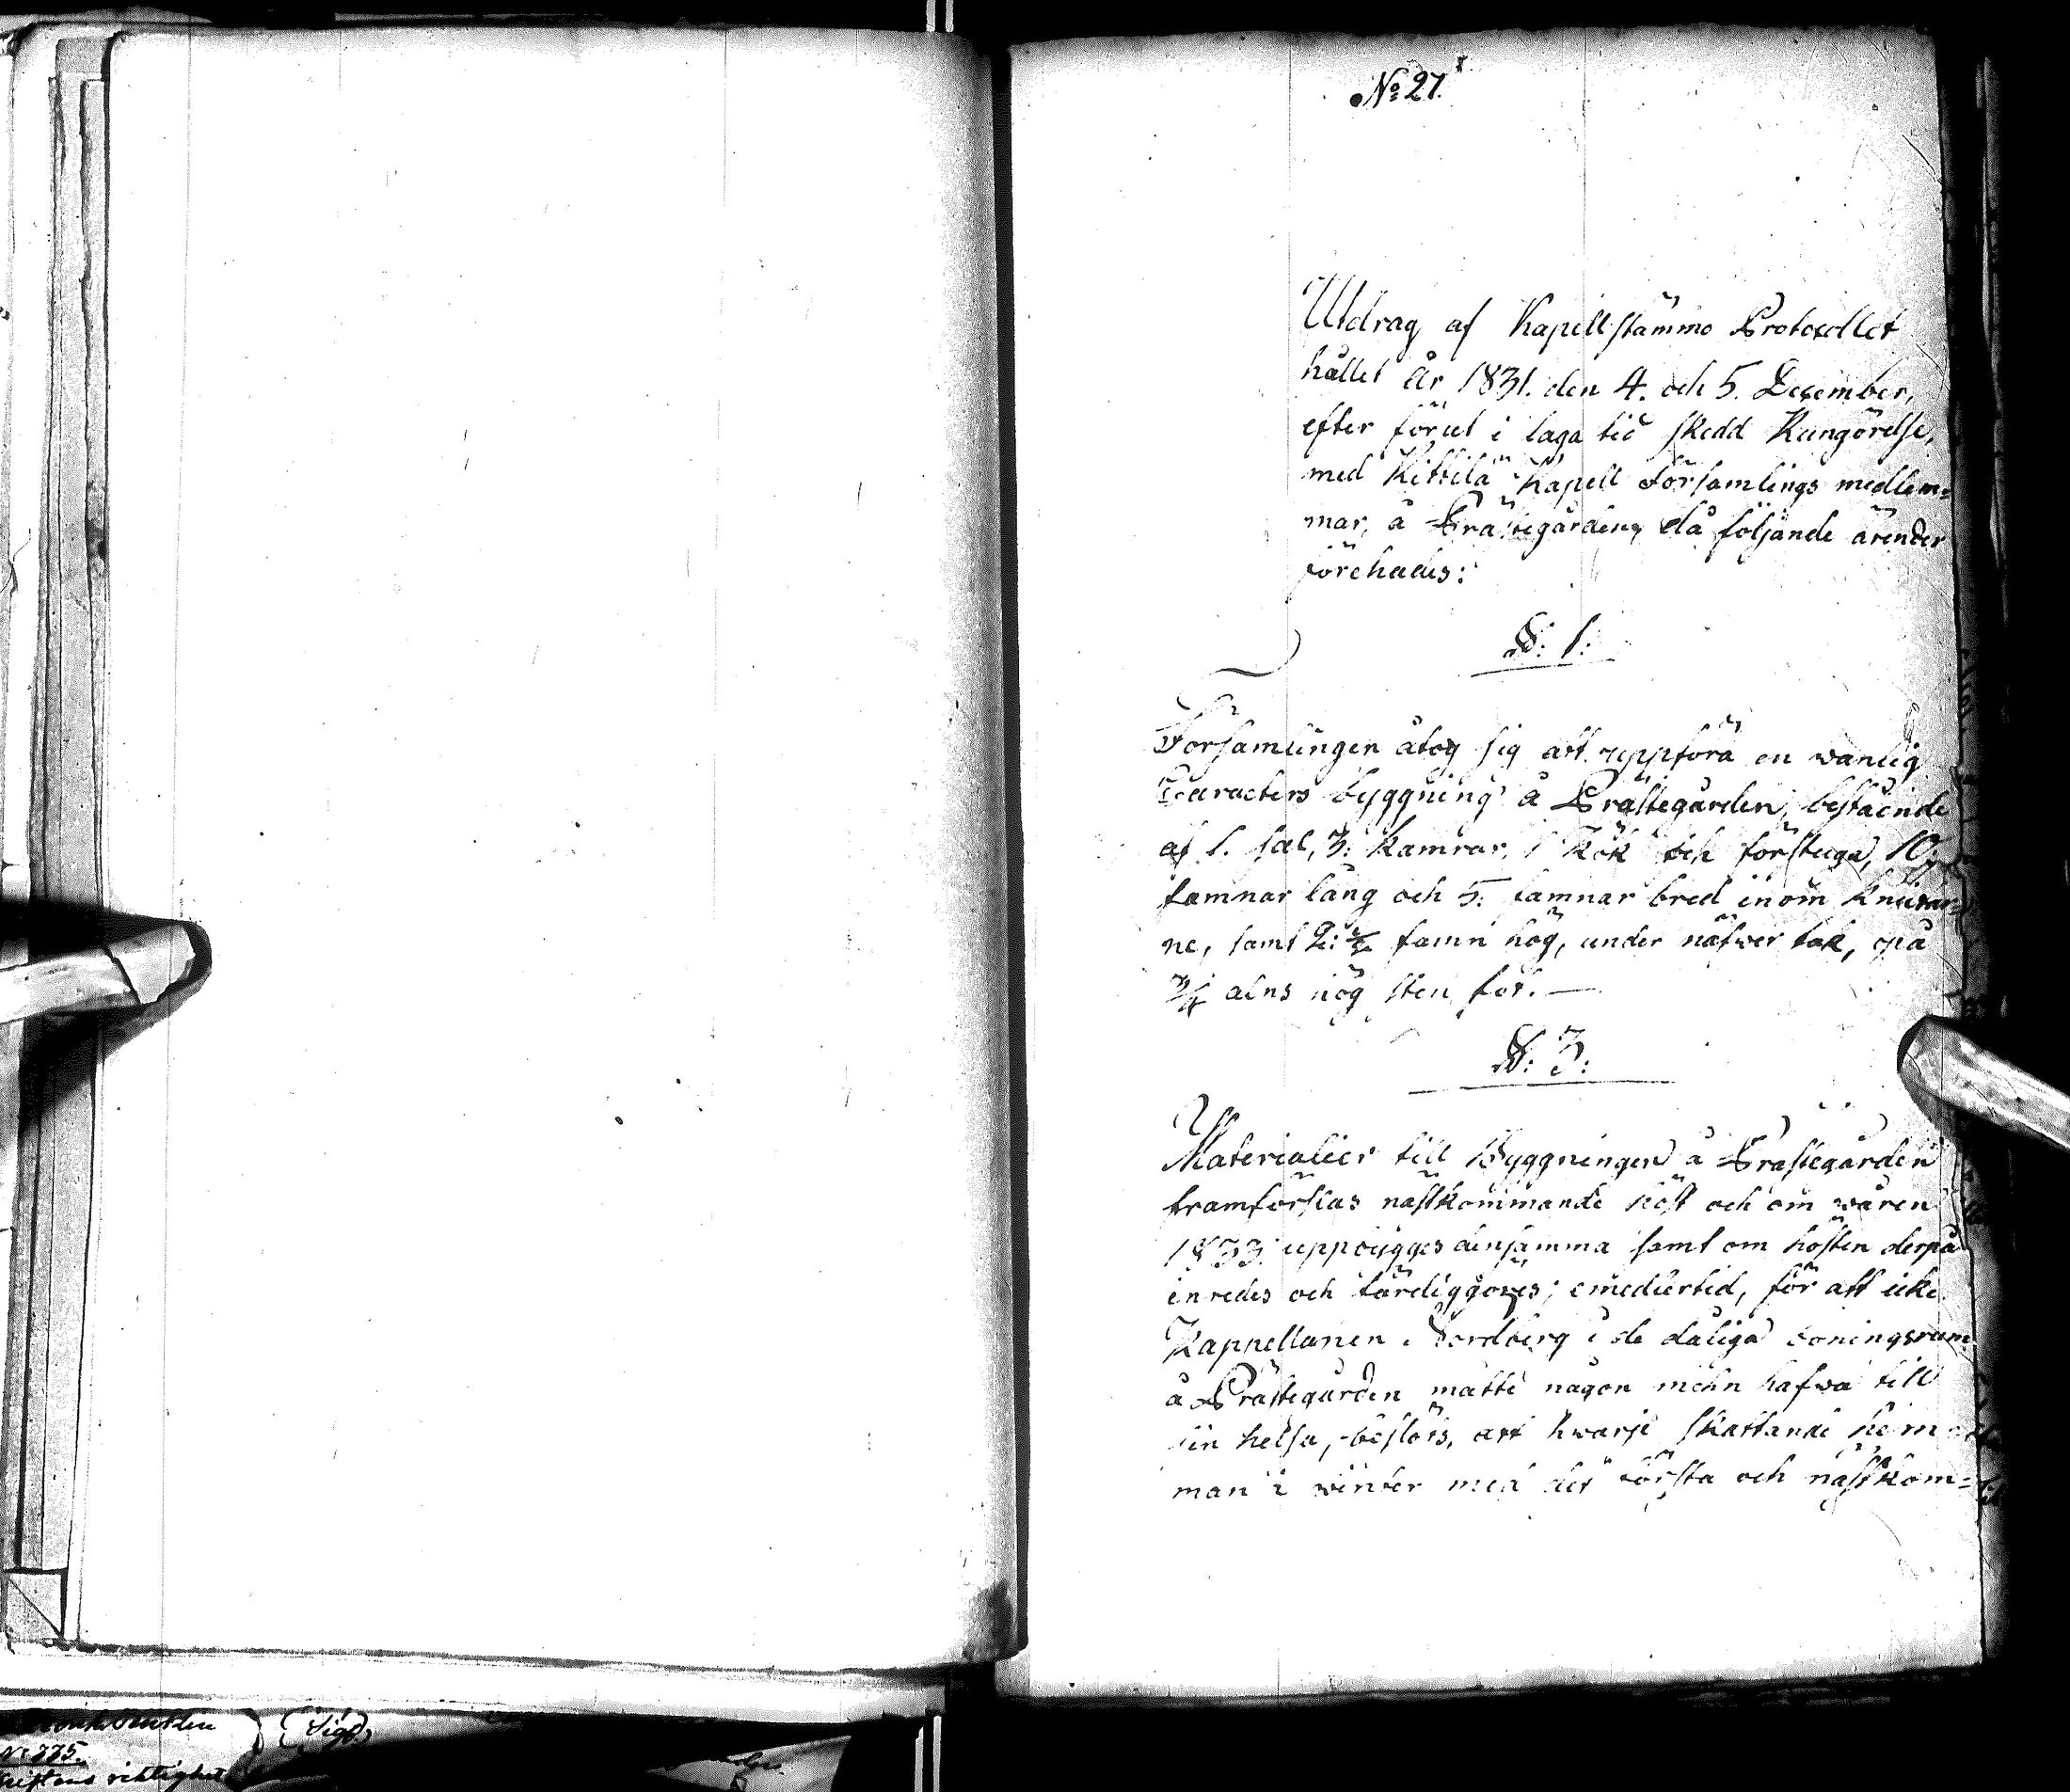 No: 27.
Utdrag af Kapellstämmo Protocollet
hållet År 1831. den 4. och 5. December,
efter förut i laga tid skedd Kungörelse,
med Kittilä Kapell Församlings medlem=
mar, å Prästegården, då följande ärender
förehades:
§: 1:
Församlingen åtog sig att uppföra en vanlig
Caracters byggning å Prästegården, bestående
af 1. sal, 3: kamrar, 1 kök och förstuga, 10
famnar lång och 5. famnar bred inom knutar=
ne, samt 2: ½ famn hög, under näfwer tak, på
3/4 alns hög sten fot. —
§: 3:
Materialier till Byggningen å Prästegården
framforslas nästkommande höst och om wåren
1833. uppbygges densamma samt om hösten derpå
inredes och färdiggöres; emedlertid, för att icke
Kappellanen Nordberg i de dåliga boningsrum
å Prästegården måtte någon mehn hafwa till
sin helsa, beslöts, att hwarje skattande hem=
man i winter med det första och nästkom=
No 335.
riktighet
(Sigd)